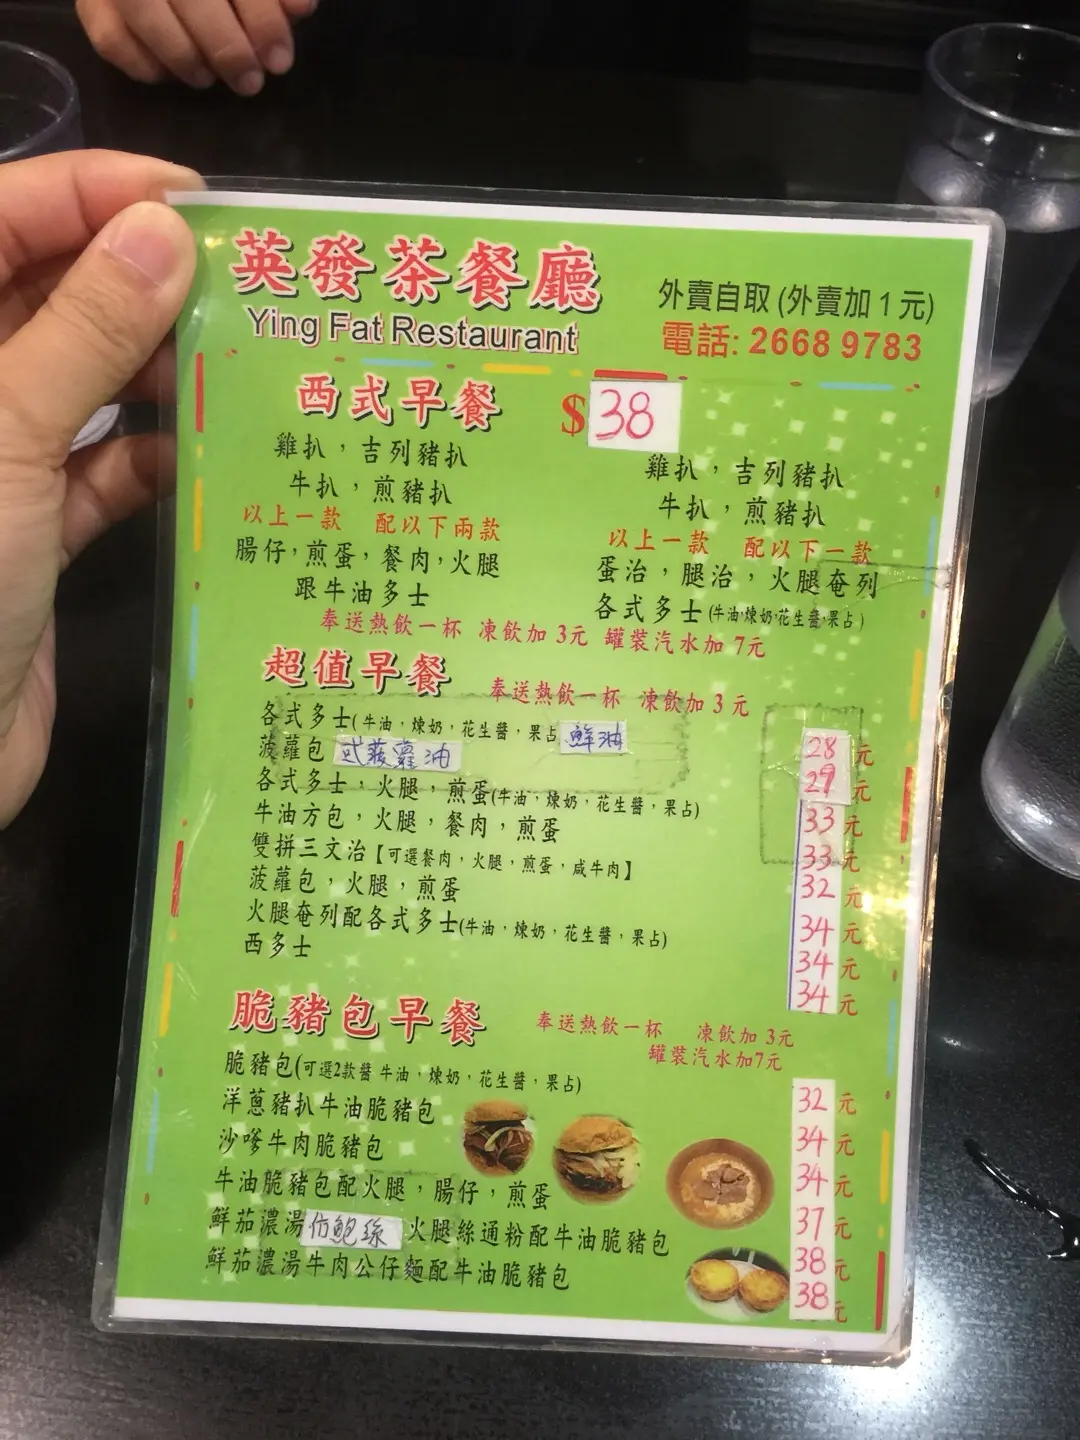 英發茶餐廳
Ying Fat Restaurant
外賣自取 (外賣加 1 元)
電話: 2668 9783
西式早餐 $38
雞扒，吉列豬扒
牛扒，煎豬扒
以上一款 配以下兩款
腸仔，煎蛋，餐肉，火腿
跟牛油多士
雞扒，吉列豬扒
牛扒，煎豬扒
以上一款 配以下一款
蛋治，腿治，火腿奄列
各式多士(牛油，煉奶，花生醬，果占)
奉送熱飲一杯 凍飲加 3元 罐裝汽水加 7元
超值早餐 奉送熱飲一杯 凍飲加 3 元
各式多士(牛油，煉奶，花生醬，果占 鮮油 28元
菠蘿包 或菠蘿油 29元
各式多士，火腿，煎蛋(牛油，煉奶，花生醬，果占) 33元
牛油方包，火腿，餐肉，煎蛋 33元
雙拼三文治【可選餐肉，火腿，煎蛋，咸牛肉】 32元
菠蘿包，火腿，煎蛋 34元
火腿奄列配各式多士(牛油，煉奶，花生醬，果占) 34元
西多士 34元
脆豬包早餐 奉送熱飲一杯 凍飲加 3元
罐裝汽水加7元
脆豬包(可選2款醬 牛油，煉奶，花生醬，果占) 32元
洋蔥豬扒牛油脆豬包 34元
沙嗲牛肉脆豬包 34元
牛油脆豬包配火腿，腸仔，煎蛋 37元
鮮茄濃湯仿鮑絲 火腿絲通粉配牛油脆豬包 38元
鮮茄濃湯牛肉公仔麵配牛油脆豬包 38元